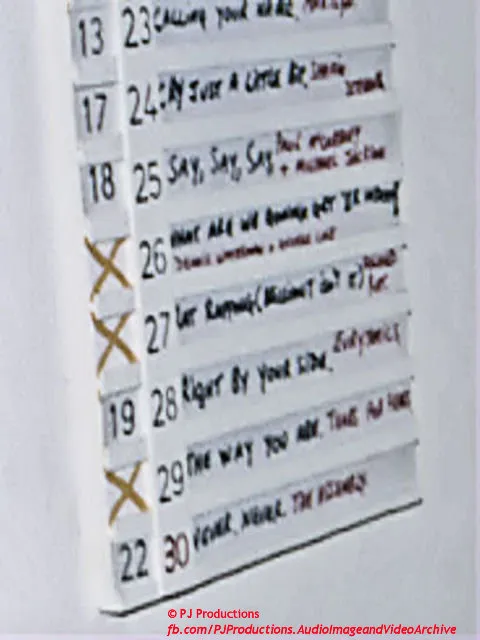 13 23 CALLING YOUR NAME. MARILYN
17 24 CRY JUST A LITTLE BIT. SHAKIN
STEVENS
18 25 SAY, SAY, SAY PAUL McCARTNEY
+ MICHAEL JACKSON
X 26 WHAT ARE WE GONNA GET 'ER INDOORS
DENNIS WATERMAN + GEORGE COLE
X 27 RAPPING
19 28 RIGHT BY YOUR SIDE. EURYTHMICS
X 29 THE WAY YOU ARE. TEARS FOR FEARS
22 30 NEVER, NEVER. THE ASSEMBLY
© PJ Productions
fb.com/PJProductions.AudioImageandVideoArchive